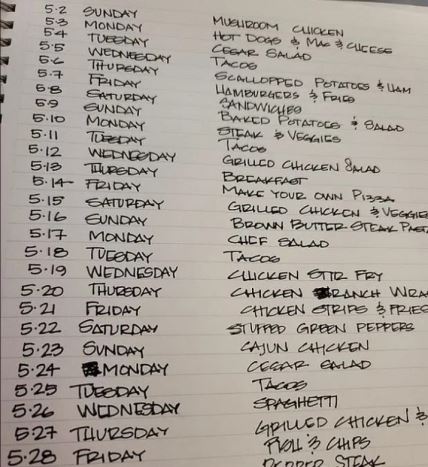 5.2 SUNDAY MUSHROOM CHICKEN
5.3 MONDAY HOT DOGS & MAC & CHEESE
5.4 TUESDAY CESAR SALAD
5.5 WEDNESDAY TACOS
5.6 THURSDAY SCALLOPPED POTATOES & HAM
5.7 FRIDAY HAMBURGERS & FRIES
5.8 SATURDAY SANDWICHES
5.9 SUNDAY BAKED POTATOES & SALAD
5.10 MONDAY STEAK & VEGGIES
5.11 TUESDAY TACOS
5.12 WEDNESDAY GRILLED CHICKEN SALAD
5.13 THURSDAY BREAKFAST
5.14 FRIDAY MAKE YOUR OWN PIZZA
5.15 SATURDAY GRILLED CHICKEN & VEGGIES
5.16 SUNDAY BROWN BUTTER STEAK PASTA
5.17 MONDAY CHEF SALAD
5.18 TUESDAY TACOS
5.19 WEDNESDAY CHICKEN STIR FRY
5.20 THURSDAY CHICKEN RANCH WRA
5.21 FRIDAY CHICKEN STRIPS & FRIES
5.22 SATURDAY STUFFED GREEN PEPPERS
5.23 SUNDAY CAJUN CHICKEN
5.24 MONDAY CESAR SALAD
5.25 TUESDAY TACOS
5.26 WEDNESDAY SPAGHETTI
5.27 THURSDAY GRILLED CHICKEN &
5.28 FRIDAY & CHIPS
PEPPER STEAK